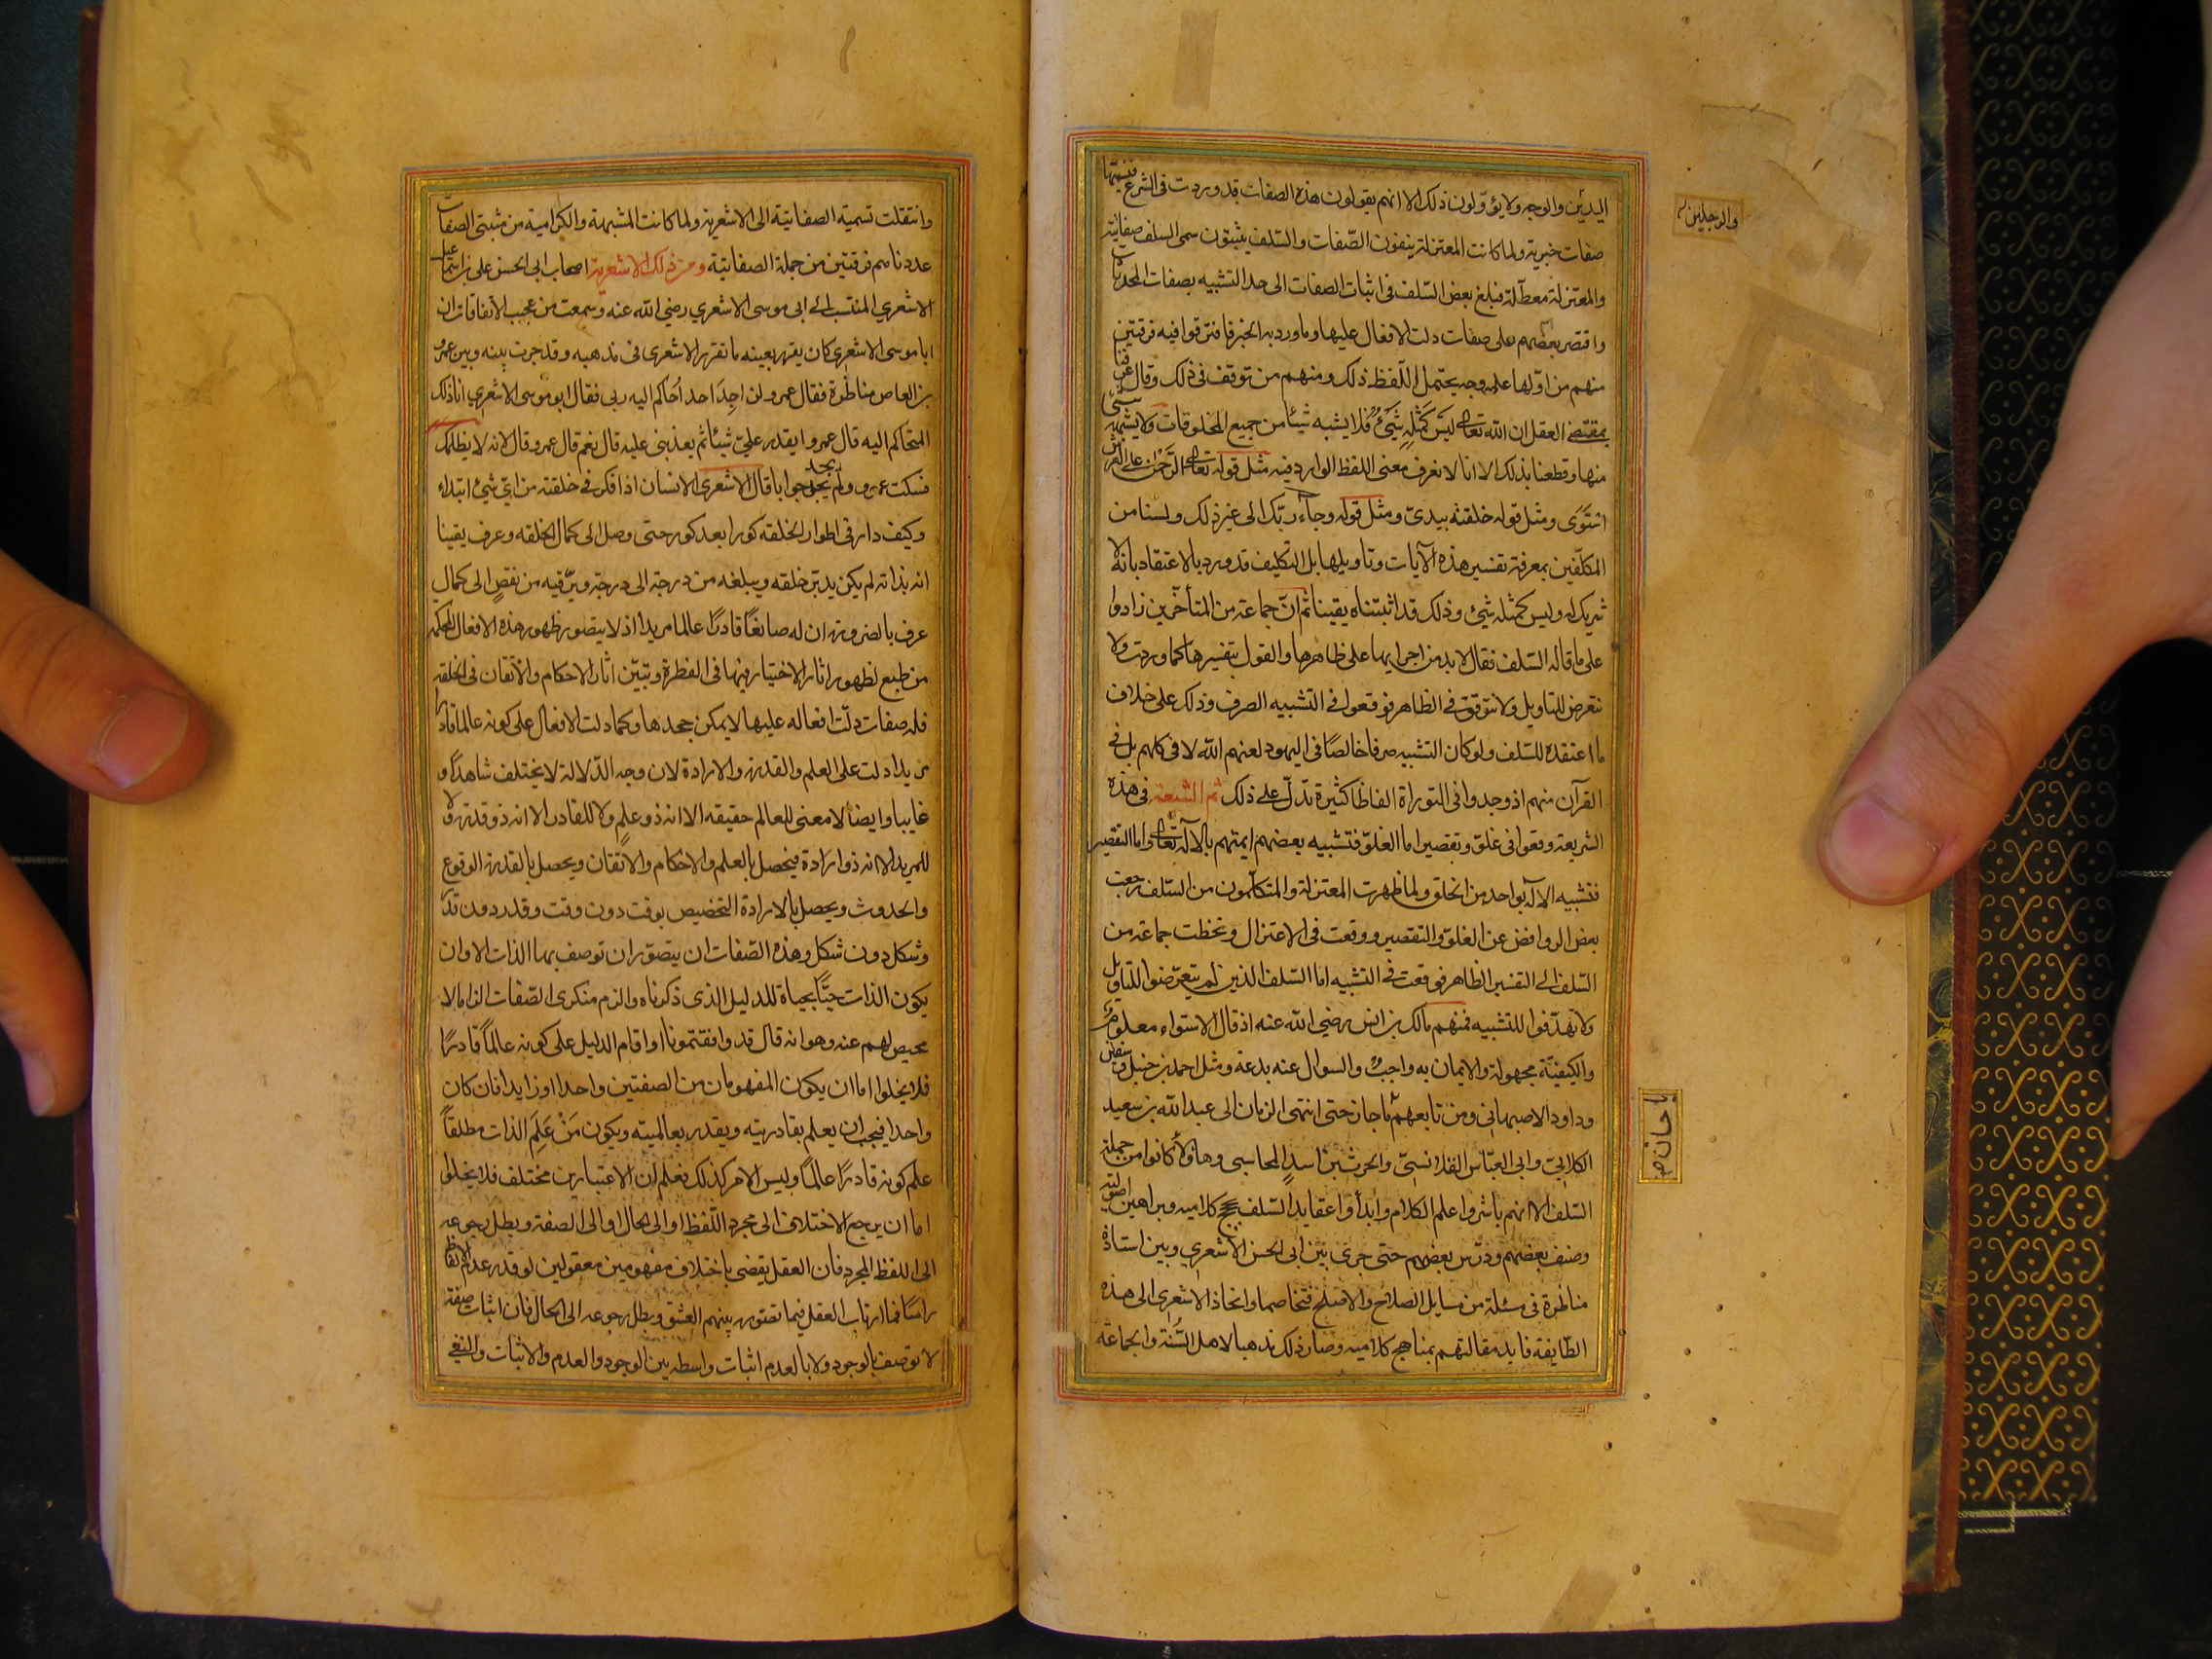 اليدين والوجه ولا يؤولون ذلك الا انهم يقولون هذه الصفات قد وردت فى الشرع فنسميها
والرجلين
صفات خبرية ولما كانت المعتزلة ينفون الصّفات والسّلف يثبتون سمى السلف صفاتية
والمعتزلة معطّلة فبلغ بعض السّلف فى اثبات الصفات الى حد التشبيه بصفات المحدثات
واقتصر بعضهم على صفات دلت الافعال عليها وما ورد به الخبر فافترقوا فيه فرقتين
منهم من اوّلها على وجه يحتمل اللّفظ ذلك ومنهم من توقف فى ذلك وقال عرفنا
بمقتضى العقل ان الله تعالى ليس كمثله شئ فلا يشبه شيئا من جميع المخلوقات ولا يشبهه شئ
منها وقطعنا بذلك الا انا لا نعرف معنى اللفظ الوارد فيه مثل قوله تعالى الرّحمن على العرش
استوى ومثل قوله خلقته بيدىّ ومثل قوله وجاء ربّك الى غير ذلك ولسنا من
المكلّفين بمعرفة تفسير هذه الآيات وتاويلها بل التكليف قد ورد بالاعتقاد بانه لا
شريك له وليس كمثله شئ وذلك قد اثبتناه يقينا ثم انّ جماعة من المتأخّرين زادوا
على ما قاله السّلف فقال لابد من اجرايها على ظاهرها والقول بتفسيرها كما وردت ولا
نتعرض للتاويل ولا نتوقف فى الظاهر فوقعوا فى التشبيه الصرف وذلك على خلاف
ما اعتقده للسّلف ولو كان التشبيه صرفا خالصًا فى اليهود لعنهم الله لا فى كلهم بل فى
القرآن منهم اذ وجدوا فى التوراة الفاظا كثيرة تدلّ على ذلك ثم الشيعة فى هذه
الشريعة وقعوا فى غلوّ وتقصير اما الغلوّ فتشبيه بعضهم ايمتهم بالاله تعالى واما التقصير
فتشبيه الاله بواحد من الخلق ولما ظهرت المعتزلة والمتكلّمون من السّلف رجعت
بعض الروافض عن الغلوّ والتقصير ووقعت فى الاعتزال وتخطت جماعة من
السّلف الى التفسير الظاهر فوقعت فى التشبيه اما السّلف الذين لم يتعرّضوا للتاويل
ولا تهدّفوا للتشبيه فمنهم مالك بن انس رضى الله عنه اذ قال الاستواء معلوم
والكيفيّة مجهولة والايمان به واجب والسوال عنه بدعة ومثل احمد بن حنبل وسفيان
وداود الاصبهانى ومن تابعهم ما جاز حتى انتهى الزمان الى عبد الله بن سعيد
الكلابى وابى العبّاس القلانسىّ والحرث بن اسد المحاسبى وهاؤلاء كانوا من جملة
السّلف الا انهم باشروا علم الكلام وابدأوا عقايد السّلف بحجج كلامية وبراهين اصولية
وصنف بعضهم ودرّس بعضهم حتى جرى بين ابى الحسن الاشعرى وبين استاذه
مناظرة فى مسئلة من مسايل الصلاح والاصلح فتخاصما وانحاز الاشعرى الى هذه
الطّايفة فايد مقالتهم بمناهج كلامية وصار ذلك مذهبا لاهل السُّنة والجماعة
وانتقلت تسمية الصفاتية الى الاشعرية ولما كانت المشبهة والكرامية من مثبتى الصفات
عددناهم فرقتين من جملة الصفاتية ومن ذلك الاشعرية اصحاب ابى الحسن على بن اسماعيل
الاشعري المنتسب الى ابى موسى الاشعري رضي الله عنه وسمعت من عجيب الاتفاقات ان
ابا موسى الاشعرى كان يقرر بعينه ما تقرر الاشعرى فى مذهبه وقد جرت بينه وبين عمرو
بن العاص مناظرة فقال عمرو لن اجد احد احاكم اليه ربى فقال ابو موسى الاشعري انا ذلك
المتحاكم اليه قال عمرو ايقدر علىّ شيئا ثم يعذبنى عليه قال نعم قال عمرو وقال لانه لا يظلمك
فسكت عمرو ولم يجد جوابا قال الاشعرى الانسان اذا فكر فى خلقته من اىّ شئ ابتداء
وكيف دار فى اطوار الخلقه كورا بعد كور حتى وصل الى كمال الخلقه وعرف يقينا
انه بذاته لم يكن يدبّر خلقه ويبلغه من درجة الى درجة ويرقيه من نقص الى كمال
عرف بالضرورة ان له صانعًا قادرًا عالما مريدا اذ لا يتصور ظهور هذه الافعال المحكمة
من طبع لظهور اثار الاختيار فيها فى الفطرة وتبيّن اثار الاحكام والاتقان فى الخلقة
فله صفات دلّت افعاله عليها لا يمكن جحدها وكما دلت الافعال على كونه عالما قادرا
مريدا دلت على العلم والقدرة والارادة لان وجه الدّلالة لا يختلف شاهدًا و
غايبا وايضا لا معنى للعالم حقيقه الا انه ذو علم ولا للقادر الا انه ذو قدرة ولا
للمريد الا انه ذو ارادة فيحصل بالعلم والاحكام والاتقان ويحصل بالقدرة الوقوع
والحدوث ويحصل بالارادة التخصيص بوقت دون وقت وقدر دون قدر
وشكل دون شكل وهذه الصّفات ان يتصوّر ان توصف بها الذات الا وان
يكون الذات حيًّا بحياة للدليل الذى ذكرناه والزم منكرى الصّفات الزاما لا
محيص لهم عنه وهو انه قال قد وافقتمونا او اقام الدليل على كونه عالمًا قادرًا
فلا يخلوا اما ان يكون المفهومان من الصفتين واحدا او زايدا فان كان
واحدا فيجب ان يعلم بقادريته ويقدر بعالميته ويكون مَنْ عَلِمَ الذات مطلقاً
علم كونه قادرًا عالمًا وليس الامر كذلك نعلم ان الاعتبارين مختلف فلا يخلوا
اما ان يرجع الاختلاف الى مجرد اللّفظ او الى الحال او الى الصفة وبطل رجوعه
الى اللفظ المجرد فان العقل يقضى باختلاف مفهومين معقولين لو قدر عدم الالفاظ
راسًا فما ارتاب العقل فيما تصوّره وبطل رجوعه الى الحال فان اثبات صفة
لا توصف بالوجود ولا بالعدم اثبات واسطة بين الوجود والعدم والاثبات والنفى